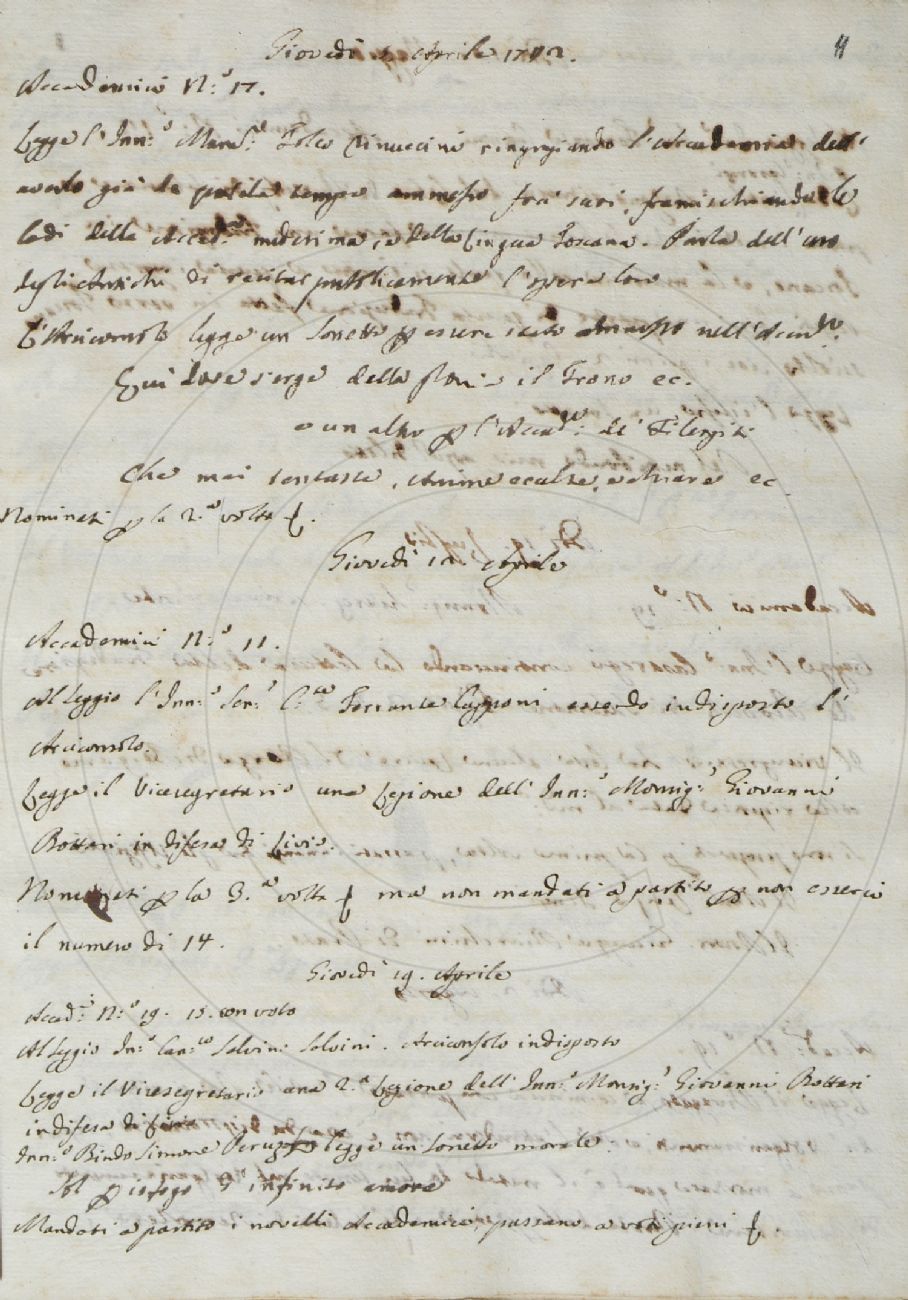 11
Giovedì 5. Aprile 1742.
Accademici N.o 17.
Legge l'Inn.o March.e Folco Rinuccini ringraziando l'Accademia dell'
averlo già da tempo ammesso fra suoi, framischiando le
lodi della Accad.a medesima, e della Lingua Toscana. Parla dell'uso
degli Antichi di recitar pubblicamente l'opere loro
L'Arciconsolo legge un Sonetto p essere stato ammesso nell'Accad.a
Qui dove s'erge della il Trono ec.
e un altro p l'Accad.a de'
Che mai tentaste, Anime eccelse, e chiare ec.
Nominati p la 2.a volta f.
Giovedì 12. Aprile
Accademici N.o 11.
Al Leggio l'Inn.o Sen.e Ferrante Capponi essendo indisposto l'
Arciconsolo.
Legge il Vicesegretario una Lezione dell'Inn.o Monsig.r Giovanni
Bottari in difesa di Livio.
Nominati p la 3.a volta f ma non mandati a partito p non esserci
il numero di 14.
Giovedì 19. Aprile
Accad.i N.o 19. 15. con voto
Al Leggio Inn.o Can.co Salvino Salvini. Arciconsolo indisposto
Legge il Vicesegretario una 2.a Lezione dell'Inn.o Monsig.r Giovanni Bottari
in difesa di Livio
Inn.o Bindo Simone Peruzzi legge un Sonetto morale.
p infinito amore
Mandati a partito i novelli Accademici, passano a voti pieni f.